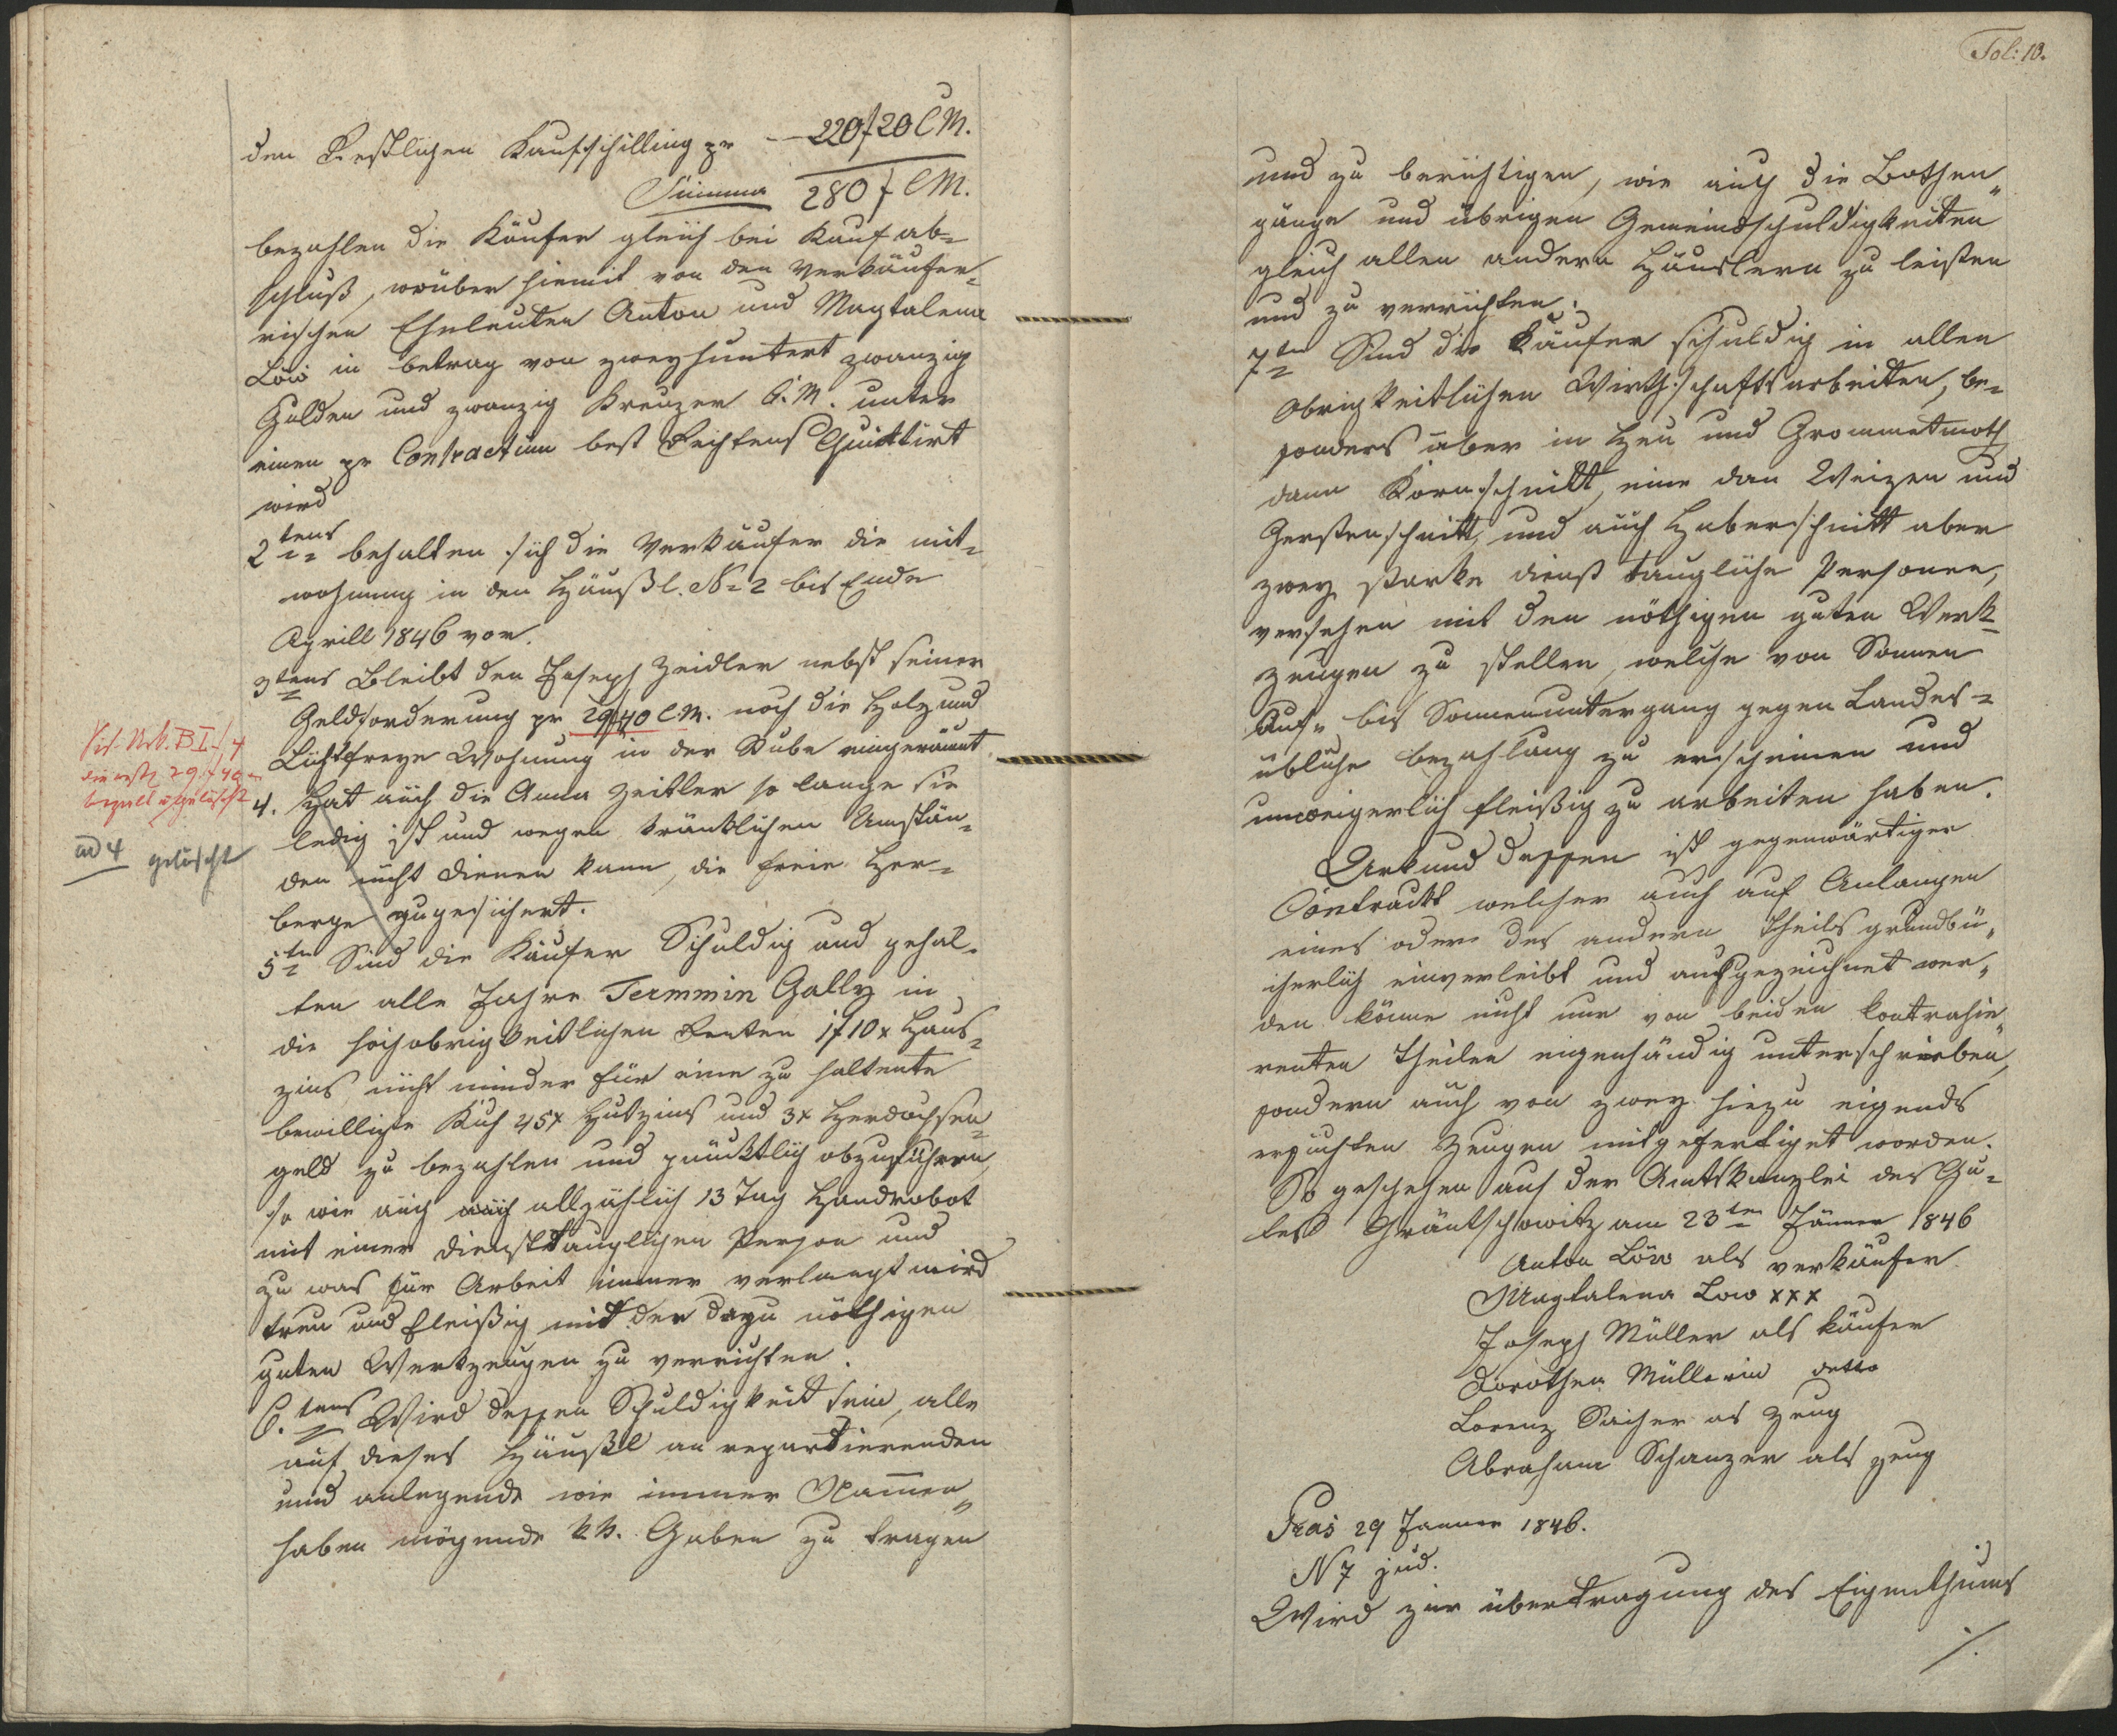 den Restlichen Kaufschilling pr — 220 f 20 CM.
Summa 280 f CM.
bezahlen die Käufer gleich bei Kauf ab=
schluß, worüber hiemit von den Verkäufer=
ischen Eheleuten Anton und Magtalena
Löw in betrag von zweyhuntert zwanzig
Gulden und zwanzig Kreuzer C. M. unter
einen pr Contractum best Rechtens Quittirt
wird
2tens behalten sich die Verkäufer die mit=
wohnung in den Häußl. No 2 bis Ende
Aprill 1846 vor.
3tens Bleibt den Joseph Zeidler nebst seiner
Geldforderung pr 29f40 CM. noch die Holz und
Lichtfreye Wohnung in der Stube eingeräumt
4. Hat auch die Anna Zeitler so lange sie
ledig ist und wegen kränklichen Umstän=
den nicht dienen kann, die freie Her=
berge zugesichert.
5tn Sind die Käufer Schuldig und gehal=
ten alle Jahre Termmin Gally in
die hochobrigkeitlichen Renten 1f 10x Haus=
zins nicht minder für eine zu haltente
bewilligte Kuh 45x Hutzins und 3x Herdochsen=
geld zu bezahlen und pünktlich abzuführen
so wie auch alljählich 13 Tag Handrobot
mit einer diensttauglichen Person und
zu was für Arbeit immer verlangt wird
treu und fleißig mit der dazu nöthigen
guten Werkzeugen zu verrichten.
6.tens Wird dessen Schuldigkeit sein, alle
auf dieses Häußl an repartierenden
und anlegende wie immer Namen
haben mögende kk. Gaben zu tragen
ad 4 gelöscht
bezalt u gelöscht
Fol: 10.
und zu berichtigen, wie auch die Bothen=
gänge und übrigen Gemeindschuldigkeiten
gleich allen andern Häuslern zu leisten
und zu verrichten.
7tn Sind die Käufer schuldig in allen
Obrigkeitlichen Wirthschaftsarbeiten, be=
sonders aber in Heu und Grommetmath
dann Kornschnitt, eine dan Weizen und
Gerstenschnitt, und auch Haberschnitt aber
zwey starke dienst taugliche Personen,
versehen mit den nöthigen guten Werk=
zeugen zu stellen, welche von Sonnen
Auf= bis Sonnenuntergang gegen Landes=
übliche bezahlung zu erscheinen und
unweigerlich fleißig zu arbeiten haben.
Urkund dessen ist gegenwärtiger
Contrackt welcher auch auf Anlangen
eines oder des andern Theils grundbü=
cherlich einverleibt und ausgezeichnet wer=
den könne nicht nur von beiden kontrahie=
renten Theilen eigenhändig unterschrieben,
sondern auch von zwey hiezu eigends
ersuchten Zeugen mitgefertiget worden.
So geschehen auf der Amtskanzlei des Gu=
tes Gräntschowitz am 23tn Jänner 1846
Anton Löw als verkäufer
Magtalena Low xxx
Joseph Müller als käufer
Dorothea Müllerin detto
Lorenz Sacher as Zeug
Abraham Schanzer als zeug
Pras 29 Janner 1846.
N 7 jud.
Wird zur übertragung des Eigenthums
./.